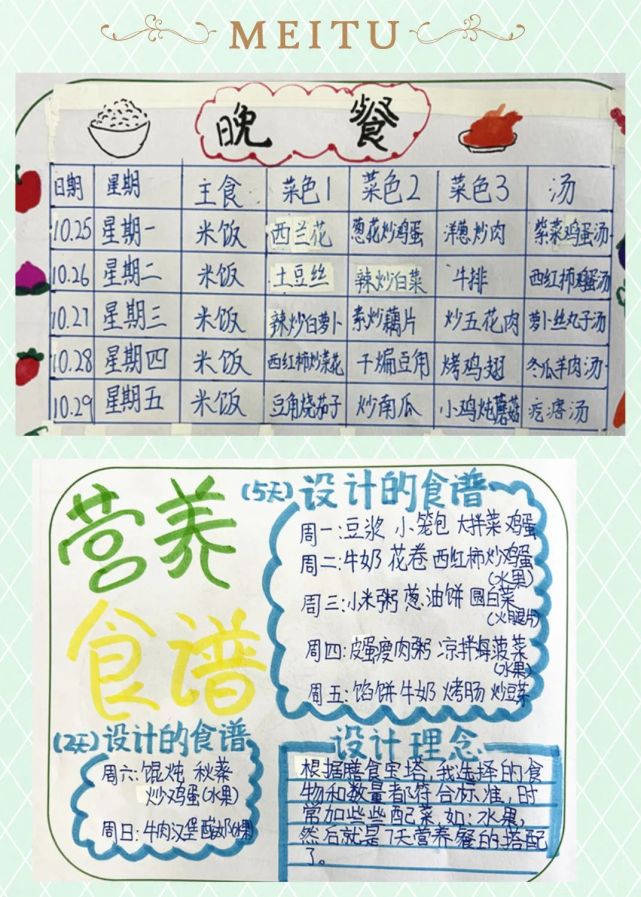 MEITU
晚 餐
日期 星期 主食 菜色1 菜色2 菜色3 汤
10.25 星期一 米饭 西兰花 葱花炒鸡蛋 洋葱炒肉 紫菜鸡蛋汤
10.26 星期二 米饭 土豆丝 辣炒白菜 牛排 西红柿鸡蛋汤
10.27 星期三 米饭 辣炒白萝卜 素炒藕片 炒五花肉 萝卜丝丸子汤
10.28 星期四 米饭 西红柿炒菜花 干煸豆角 烤鸡翅 冬瓜羊肉汤
10.29 星期五 米饭 豆角烧茄子 炒南瓜 小鸡炖蘑菇 疙瘩汤
营养
食谱
(5天)设计的食谱
周一:豆浆 小笼包 大拌菜 鸡蛋
周二:牛奶 花卷 西红柿炒鸡蛋
(水果)
周三:小米粥 葱油饼 圆白菜
(火腿片)
周四:皮蛋瘦肉粥 凉拌海菠菜
(水果)
周五:馅饼 牛奶 烤肠 炒豆芽
(2天)设计的食谱
周六:馄炖 秋葵
炒鸡蛋(水果)
周日:牛肉汉堡 酸奶(水果)
设计理念
根据膳食宝塔,我选择的食
物和数量都符合标准,时
常加些些配菜,如:水果,
然后就是7天营养餐的搭配
了。